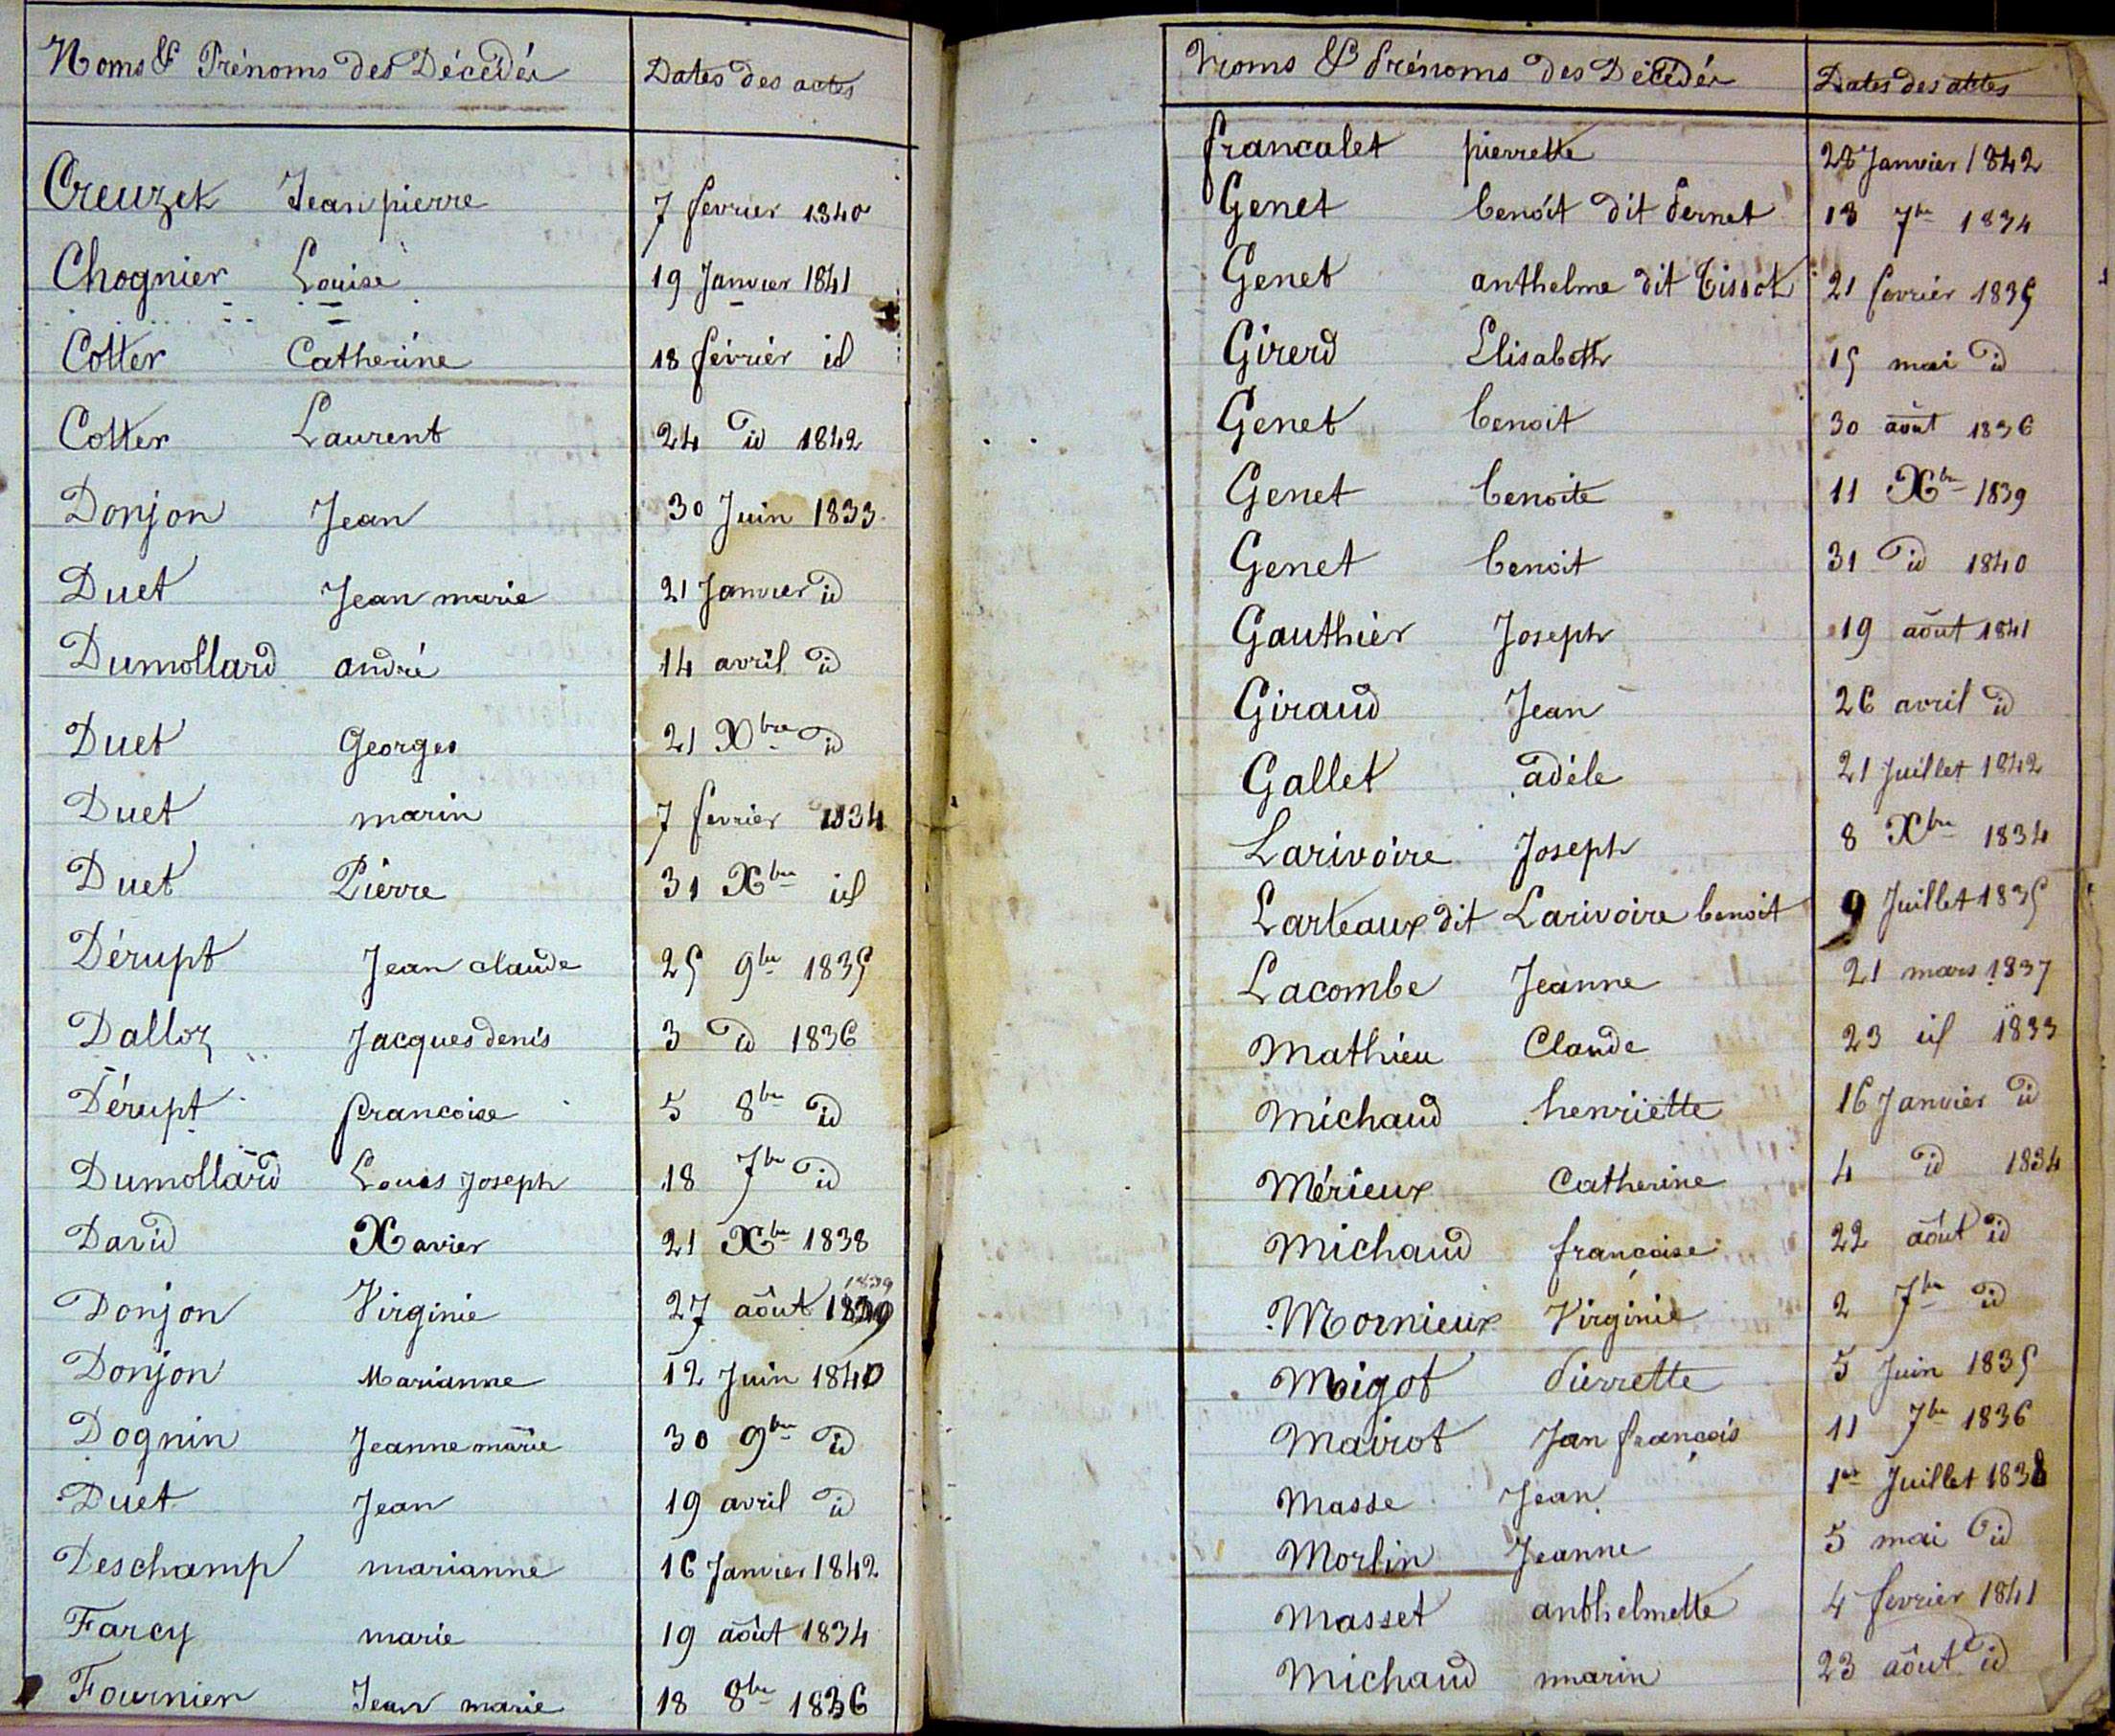 Noms & Prénoms des Décédés Dates des actes
Creuzet Jean pierre 7 fevrier 1840
Chognier Louise 19 Janvier 1841
Cotter Catherine 18 février id
Cotter Laurent 24 id 1842
Donjon Jean 30 Juin 1833
Duet Jean marie 21 Janvier id
Dumollard andré 14 avril id
Duet Georges 21 Xbre id
Duet marin 7 fevrier 1834
Duet Pierre 31 Xbre id
Dérupt Jean claude 25 9bre 1835
Dalloz Jacques denis 3 id 1836
Dérupt francoise 5 8bre id
Dumollard Louis Joseph 18 7bre id
David Xavier 21 Xbre 1838
1839
Donjon Virginie 27 août 1839
Donjon Marianne 12 Juin 1840
Dognin Jeanne marie 30 9bre id
Duet Jean 19 avril id
Deschamp marianne 16 Janvier 1842
Farcy marie 19 août 1834
Fournier Jean marie 18 8bre 1836
Noms & Prénoms des Décédés Dates des actes
francalet pierrette 28 Janvier 1842
Genet benoit dit Pernet 13 7bre 1834
Genet anthelme dit Tissot 21 fevrier 1835
Girerd Elisabeth 15 mai id
Genet benoit 30 août 1836
Genet benoite 11 Xbre 1839
Genet benoit 31 id 1840
Gauthier Joseph 19 août 1841
Giraud Jean 26 avril id
Gallet adèle 21 Juillet 1842
Larivoire Joseph 8 Xbre 1834
Larteaux dit Larivoire benoit 9 Juillet 1835
Lacombe Jeanne 21 mars 1837
Mathieu Claude 23 id 1833
Michaud henriette 16 Janvier id
Mérieux Catherine 4 id 1834
Michaud françoise 22 août id
Mornieux Virginie 2 7bre id
Migot Pierrette 5 Juin 1835
Mairot Jan françois 11 7bre 1836
Masse Jean 1er Juillet 1838
Morlin Jeanne 5 mai id
Masset anthelmette 4 fevrier 1841
Michaud marin 23 août id